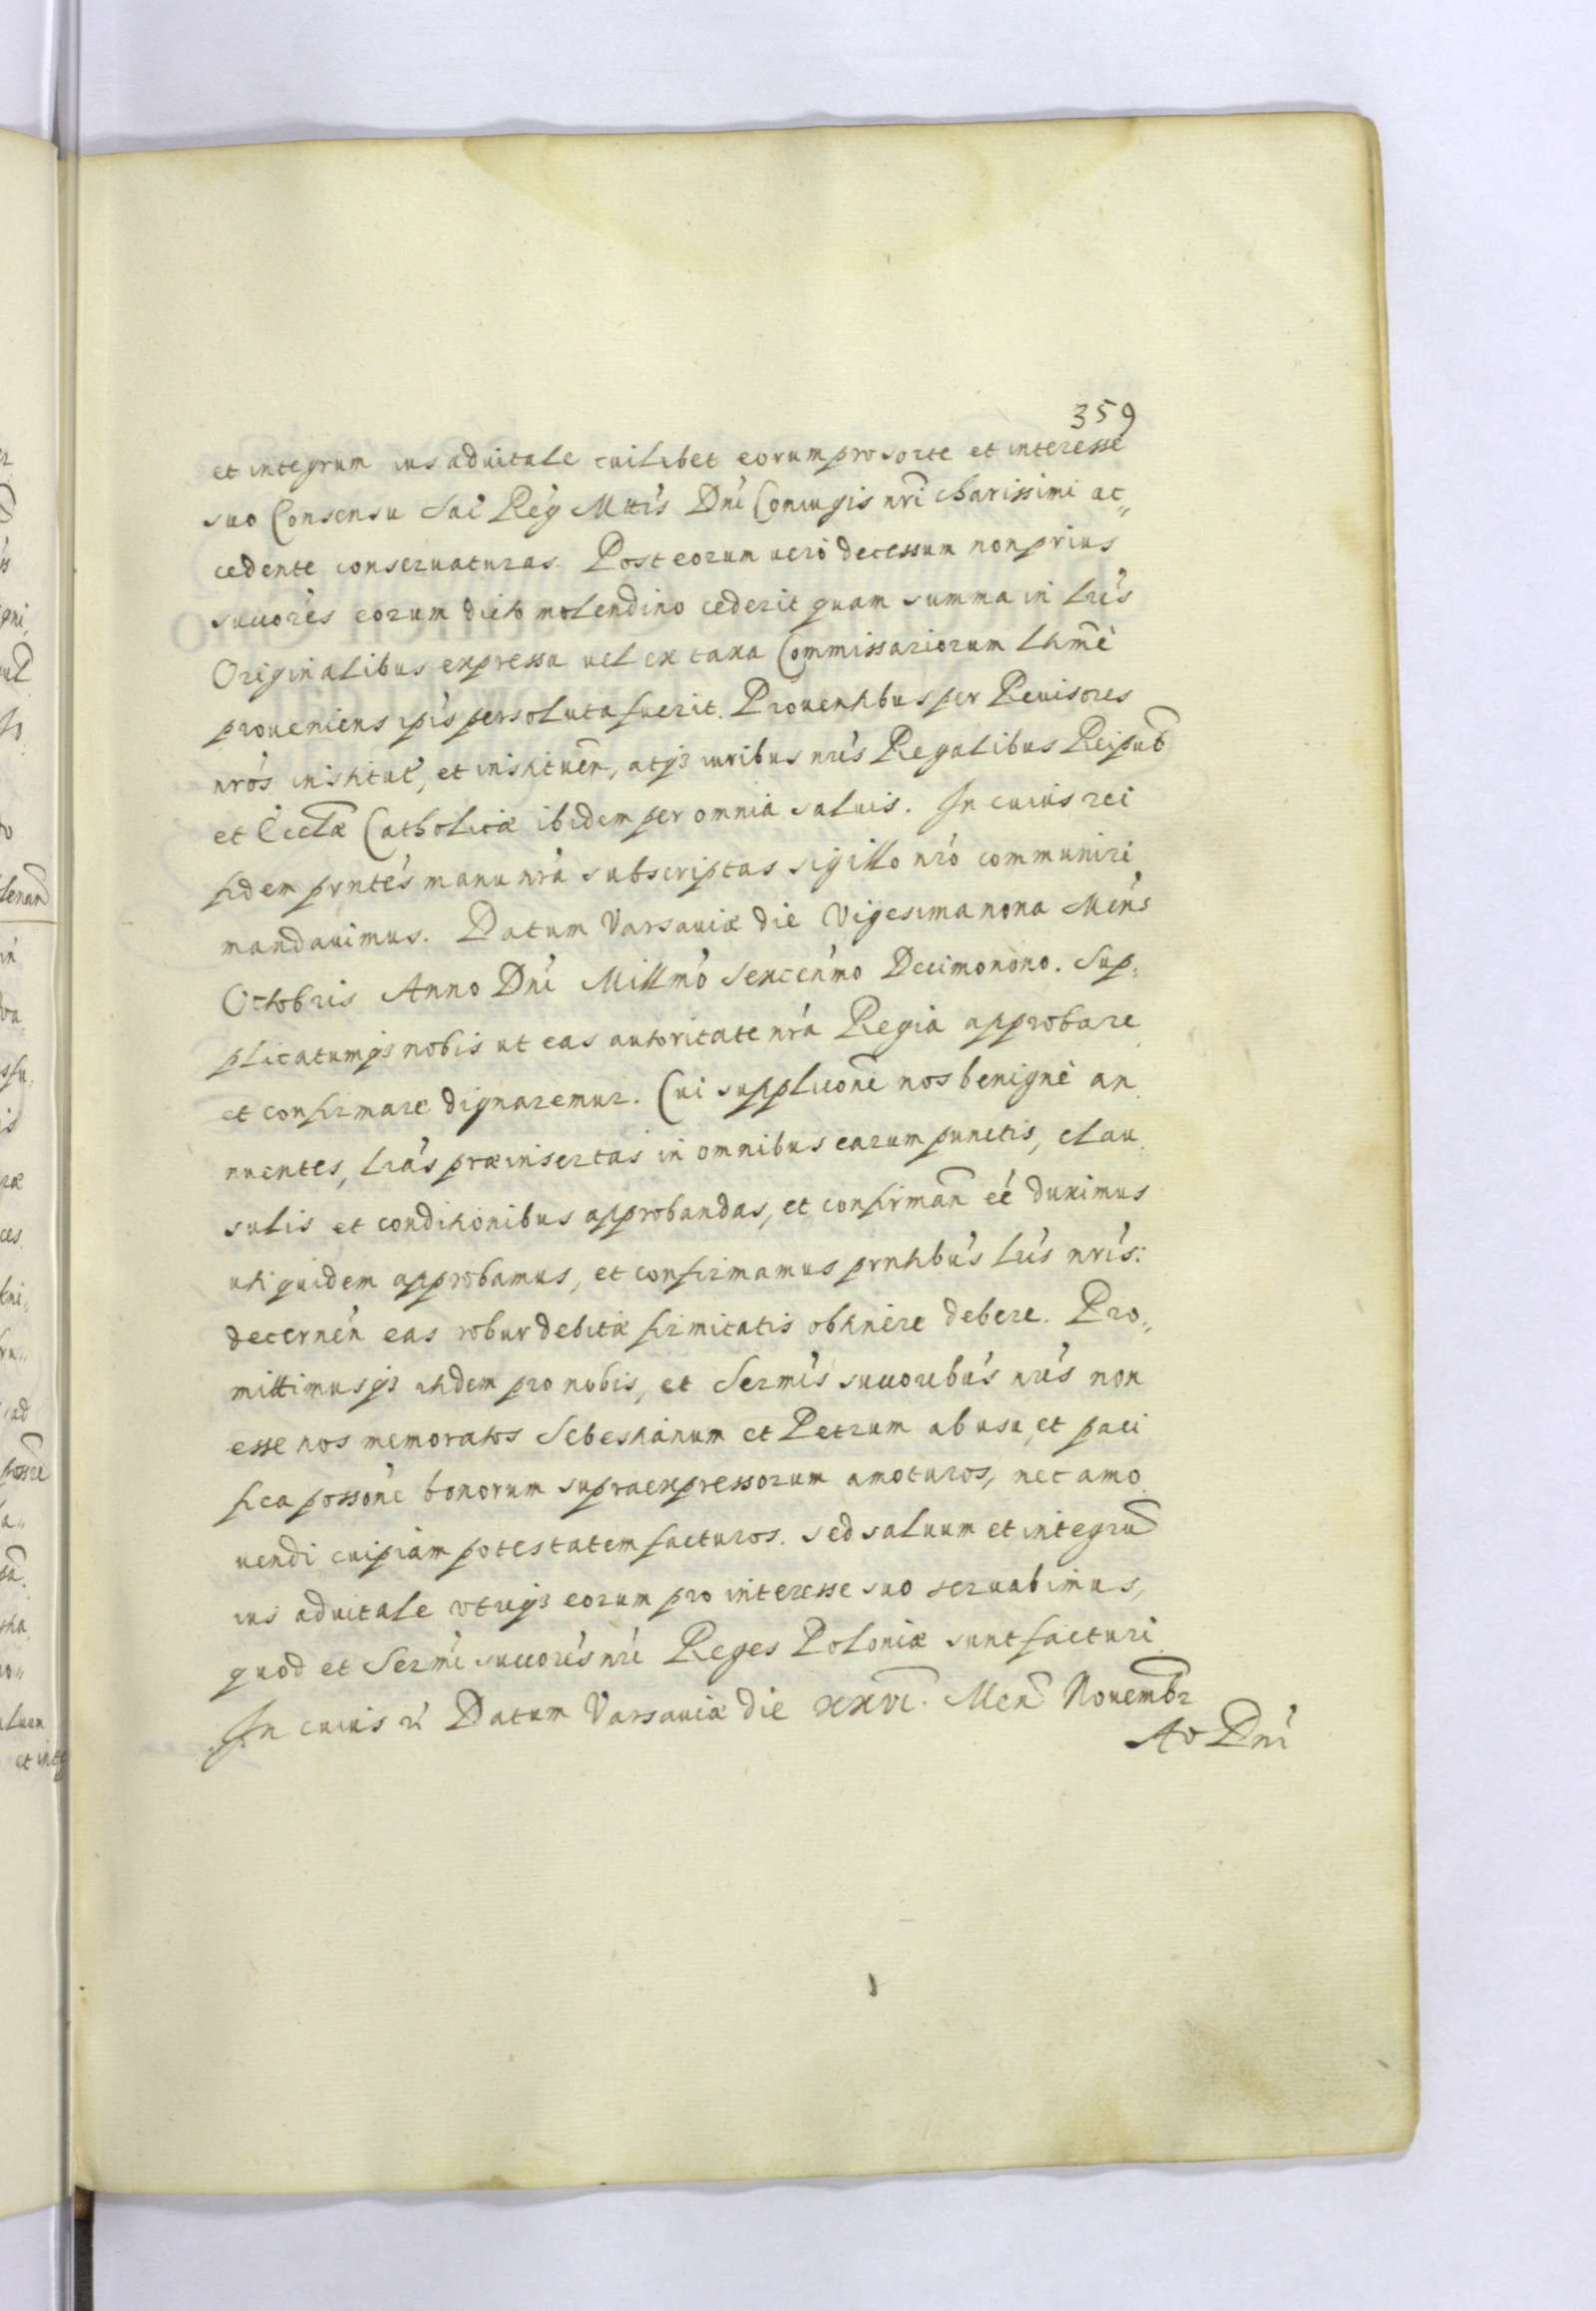 359
et integrum ius aduitale cuilibet eorum pro sorte et interesse
suo Consensu Sac̃ Reg̃ Mttis Dni Coniugis nri charissimi ac„
cedente conseruaturas. Post eorum uero decessum non prius
succores eorum dicto molendino cederit quam summa in lris
Originalibus expressa uel ex taxa Commissariorum lhme
proueniens ipis persoluta fuerit. Prouentibus per Reuisores
nros institut, et instituen, atqȝ iuribus nris Regalibus Reipub
et Eccla Catholicæ ibidem per omnia saluis. In cuius rei
fidem pntes manu nra subscriptas sigillo nro communiri
mandauimus. Datum Varsauiæ die Vigesima nona Mens
Octobris Anno Dni Millmo Sexcenmo Decimonono. Sup„
plicatumqȝ nobis ut eas autoritate nra Regia approbare
et confirmare dignaremur. Cui supplicõni nos benigne an
nuentes, lras præinsertas in omnibus earum punctis, clau
sulis et conditionibus approbandas, et confirman eé duximus
uti quidem approbamus, et confirmamus prntibus lris nris:
decernen eas robur debitæ firmitatis obtinere debere. Pro„
mittimusqȝ itidem pro nobis, et Sermis succoribus nris non
esse nos memoratos Sebestianum et Petrum ab usu, et paci
fica possone bonorum supraexpressorum amoturos, nec amo
uendi cuipiam potestatem facturos. sed saluum et integrũ
ius aduitale vtriqȝ eorum pro interesse suo seruabimus,
quod et Sermi succores nri Reges Poloniæ sunt facturi.
In cuius r̃ Datum Varsauiæ die xxvi. Men Nouembr
Ao Dni